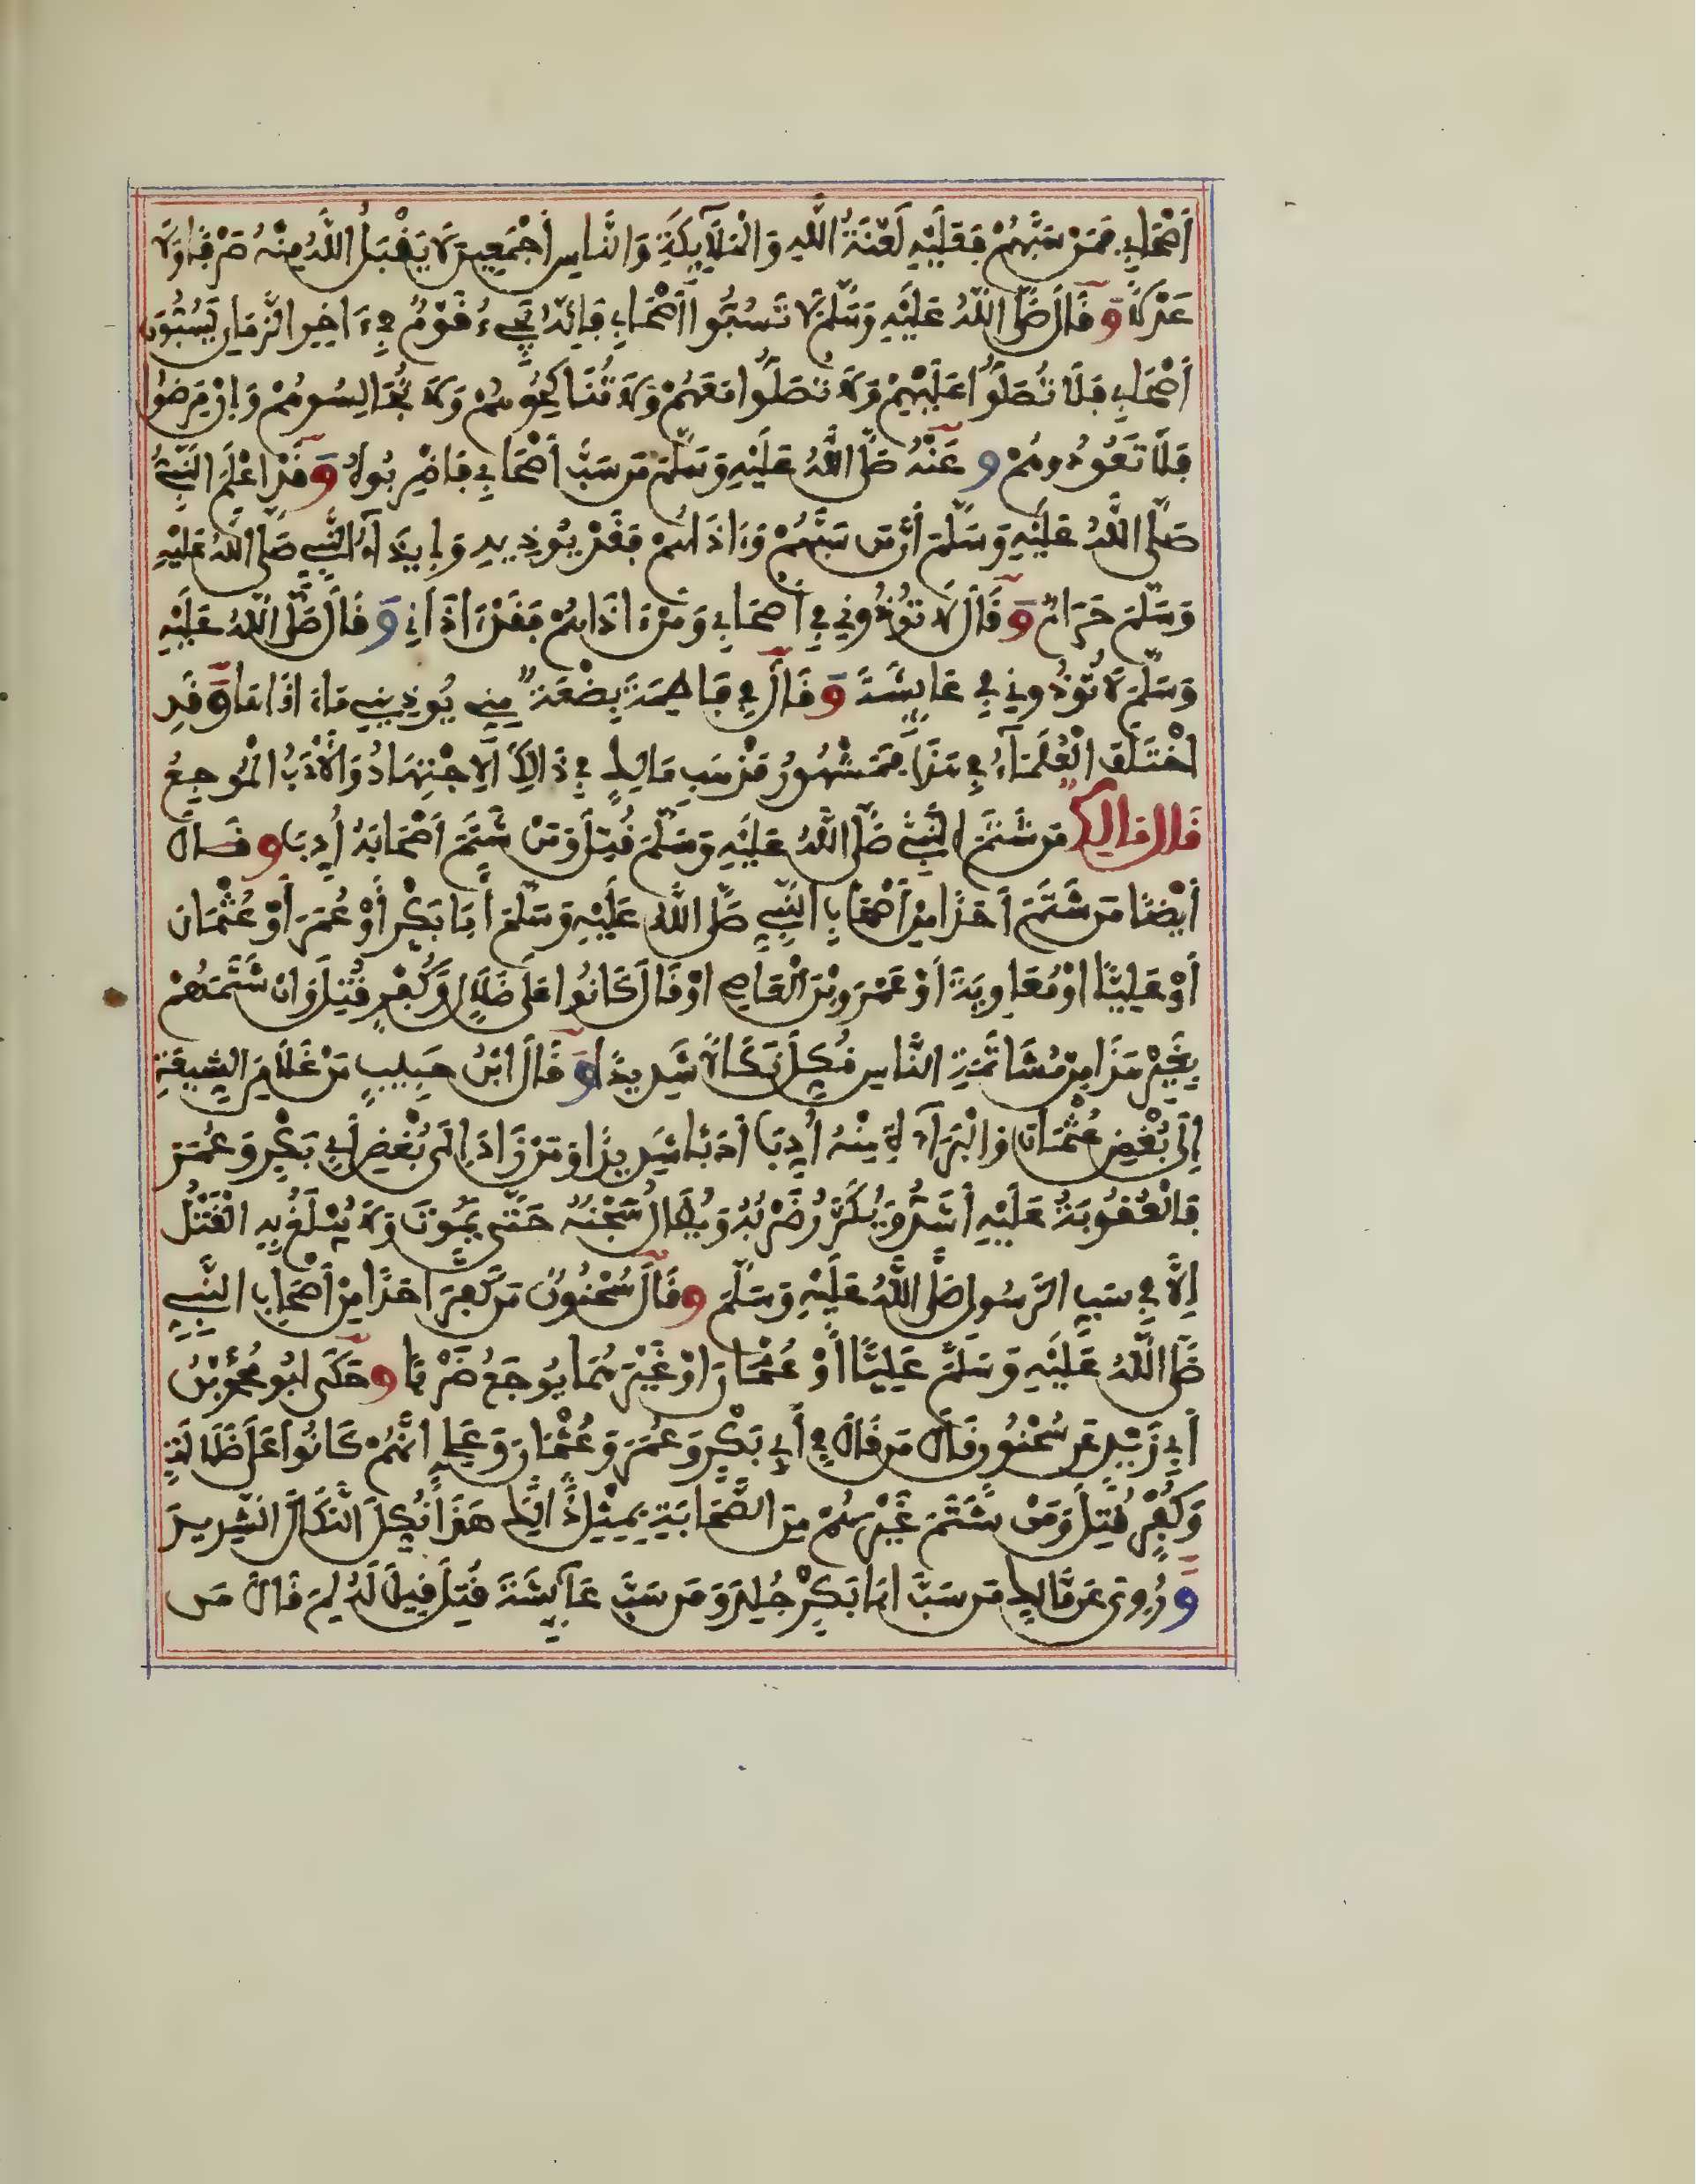 أَصْحَابِي فَمَنْ سَبَّهُمْ فَعَلَيْهِ لَعْنَةُ اللَّهِ وَالْمَلَآئِكَةِ وَالنَّاسِ أَجْمَعِينَ لَا يَقْبَلُ اللَّهُ مِنْهُ صَرْفًا وَلَا
عَدْلًا وَقَالَ صَلَّى اللَّهُ عَلَيْهِ وَسَلَّمَ لَا تَسُبُّوا أَصْحَابِي فَإِنَّهُ يَجِيءُ قَوْمٌ فِي ءَاخِرِ الزَّمَانِ يَسُبُّونَ
أَصْحَابِي فَلَا تُصَلُّوا عَلَيْهِمْ وَلَا تُصَلُّوا مَعَهُمْ وَلَا تُنَاكِحُوهُمْ وَلَا تُجَالِسُوهُمْ وَإِنْ مَرِضُوا
فَلَا تَعُودُوهُمْ وَعَنْهُ صَلَّى اللَّهُ عَلَيْهِ وَسَلَّمَ مَن سَبَّ أَصْحَابِي فَاضْرِبُوهُ وَقَدْ أَعْلَمَ النَّبِيُّ
صَلَّى اللَّهُ عَلَيْهِ وَسَلَّمَ أَنَّ مَن سَبَّهُمْ وَءَاذَاهُمْ فَقَدْ يُوذِيهِ وَإِيذَآءُ النَّبِيِّ صَلَّى اللَّهُ عَلَيْهِ
وَسَلَّمَ حَرَامٌ وَقَالَ لَا تُوذُونِي فِي أَصْحَابِي وَمَنْ ءَاذَاهُمْ فَقَدْ ءَاذَانِي وَقَالَ صَلَّى اللَّهُ عَلَيْهِ
وَسَلَّمَ لَا تُوذُونِي فِي عَائِشَةَ وَقَالَ فِي فَاطِمَةَ بِضْعَةٌ مِنِّي يُوذِينِي مَا ءَاذَاهَا وَقَدِ
اخْتَلَفَ الْعُلَمَآءُ فِي هَذَا فَمَشْهُورُ مَذْهَبِ مَالِكٍ فِي ذَالِكَ الِاجْتِهَادُ وَالْأَدَبُ الْمُوجِعُ
قَالَ مَالِكٌ مَن شَتَمَ النَّبِيَّ صَلَّى اللَّهُ عَلَيْهِ وَسَلَّمَ قُتِلَ وَمَنْ شَتَمَ أَصْحَابَهُ أُدِّبَ وَقَالَ
أَيْضًا مَن شَتَمَ أَحَدًا مِنْ أَصْحَابِ النَّبِيِّ صَلَّى اللَّهُ عَلَيْهِ وَسَلَّمَ أَبَا بَكْرٍ أَوْ عُمَرَ أَوْ عُثْمَانَ
أَوْ عَلِيًّا أَوْ مُعَاوِيَةَ أَوْ عَمْرَو بْنَ الْعَاصِي أَوْ قَالَ كَانُوا عَلَى ضَلَالٍ وَكُفْرٍ قُتِلَ وَإِنْ شَتَمَهُمْ
بِغَيْرِ هَذَا مِنْ مُشَاتَمَةِ النَّاسِ نُكِّلَ نَكَالًا شَدِيدًا وَقَالَ ابْنُ حَبِيبٍ مَنْ غَلَا مِنَ الشِّيعَةِ
إِلَى بُغْضِ عُثْمَانَ وَالْبَرَآءَةِ مِنْهُ أُدِّبَ أَدَبًا شَدِيدًا وَمَنْ زَادَ إِلَى بُغْضِ أَبِي بَكْرٍ وَعُمَرَ
فَالْعُقُوبَةُ عَلَيْهِ أَشَدُّ وَيُكَرَّرُ ضَرْبُهُ وَيُطَالُ سَجْنُهُ حَتَّى يَمُوتَ وَلَا يُبْلَغُ بِهِ الْقَتْلُ
إِلَّا فِي سَبِّ الرَّسُولِ صَلَّى اللَّهُ عَلَيْهِ وَسَلَّمَ وَقَالَ سُحْنُونٌ مَن كَفَّرَ أَحَدًا مِنْ أَصْحَابِ النَّبِيِّ
صَلَّى اللَّهُ عَلَيْهِ وَسَلَّمَ عَلِيًّا أَوْ عُثْمَانَ أَوْ غَيْرَهُمَا يُوجَعُ ضَرْبًا وَحَكَى أَبُو مُحَمَّدِ بْنُ
أَبِي زَيْدٍ عَن سُحْنُونٍ قَالَ مَن قَالَ فِي أَبِي بَكْرٍ وَعُمَرَ وَعُثْمَانَ وَعَلِيٍّ إِنَّهُمْ كَانُوا عَلَى ضَلَالَةٍ
وَكُفْرٍ قُتِلَ وَمَنْ شَتَمَ غَيْرَهُمْ مِنَ الصَّحَابَةِ بِمِثْلِ ذَالِكَ هَذَا نُكِّلَ النَّكَالَ الشَّدِيدَ
وَرُوِيَ عَن مَالِكٍ مَن سَبَّ أَبَا بَكْرٍ جُلِدَ وَمَن سَبَّ عَآئِشَةَ قُتِلَ قِيلَ لَهُ لِمَ قَالَ مَن